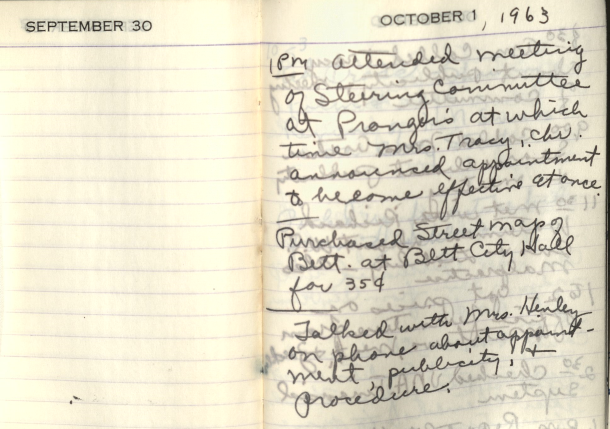 SEPTEMBER 30
OCTOBER 1, 1963
1PM attended meeting
of Steiring Committee
at Prongers at which
time Mrs. Tracy, Chr.
announsed appointment
to become effective at once.
Purchased Street map of
Bett. at Bett City Hall
for 35¢
Talked with Mrs. Henley
on phone about appoint-
ment, publicity, +
procedure.